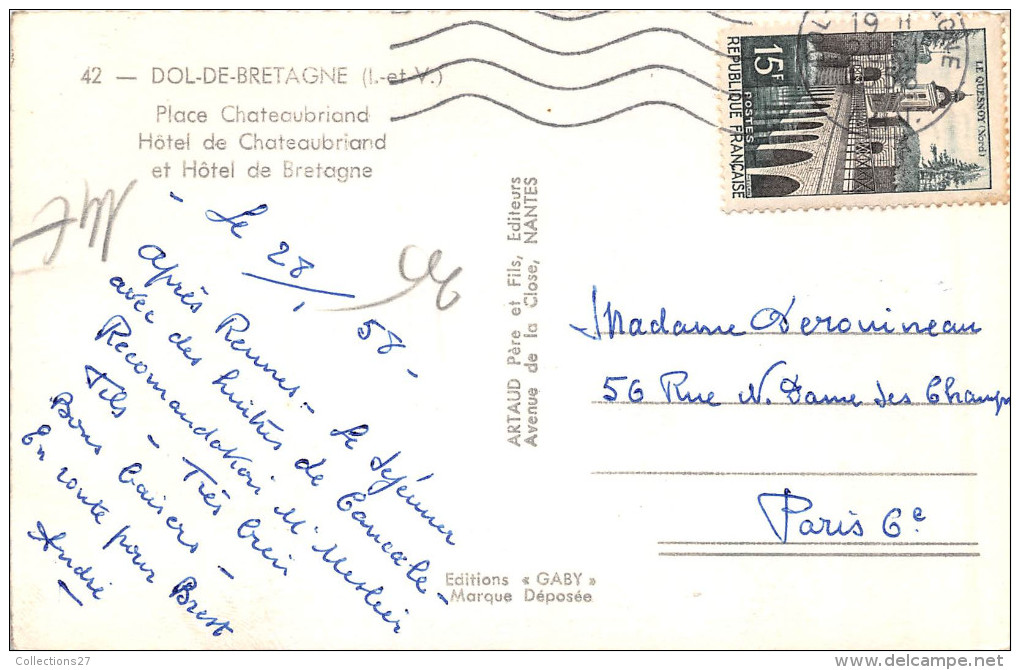 42 — DOL-DE-BRETAGNE (I.-et-V.)
Place Chateaubriand
Hôtel de Chateaubriand
et Hôtel de Bretagne
- Le 28/1 58 -
après Rennes - Le déjeuner
avec des huîtres de Cancale -
Recomandation M. Meslier
Fils - Très bien
Bons baisers -
En route pour Brest
André
ARTAUD Père et Fils, Editeurs
Avenue de la Close, NANTES
Editions « GABY »
Marque Déposée
15F
POSTES
REPUBLIQUE FRANÇAISE
LE QUESNOY (Nord)
19 H
Madame Derouineau
56 Rue N. Dame des Champs
Paris 6e
Collections27